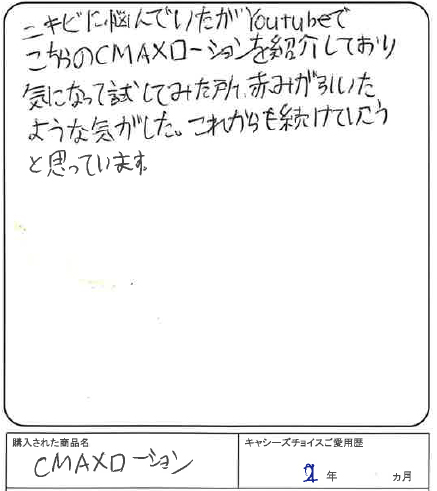 ニキビに悩んでいたがYoutubeで
こちらのCMAXローションを紹介しており
気になって試してみた所、赤みが引いた
ような気がした。これからも続けていこう
と思っています。
購入された商品名
キャシーズチョイスご愛用歴
CMAXローション
年 ヵ月